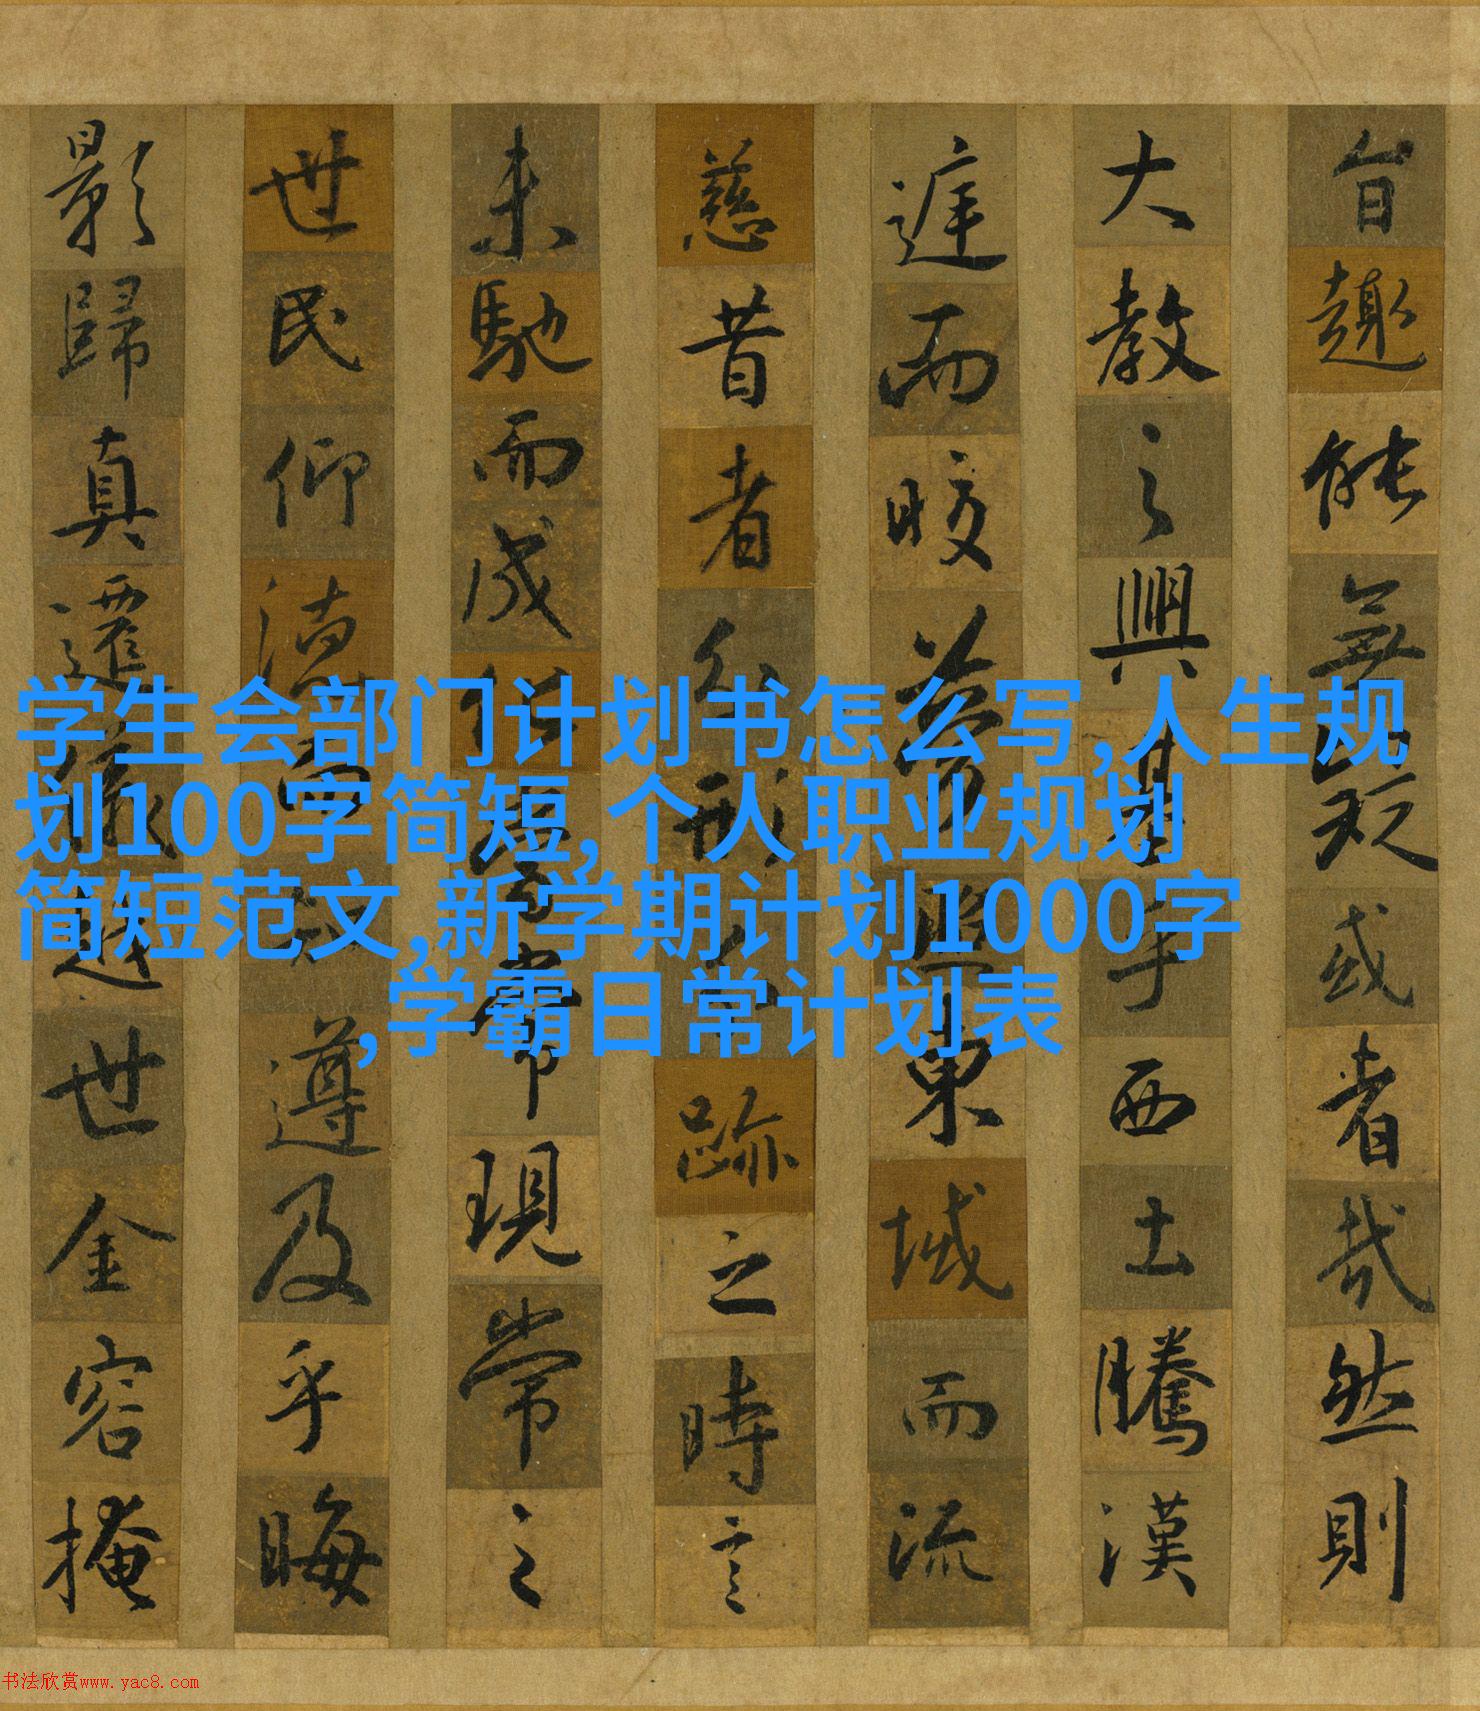 学生会部门计划书怎么写,人生规
划100字简短,个人职业规划
简短范文,新学期计划1000字
,学霸日常计划表
旨趣能無疑或者哉然則
大教之興基乎西土騰漢
庭而皎夢照東域而流
慈昔者分形分跡之時言
未馳而成化當常現常之
世民仰德而知遵及乎晦
影歸真遷儀越世金容掩
书法欣赏www.yac8.com